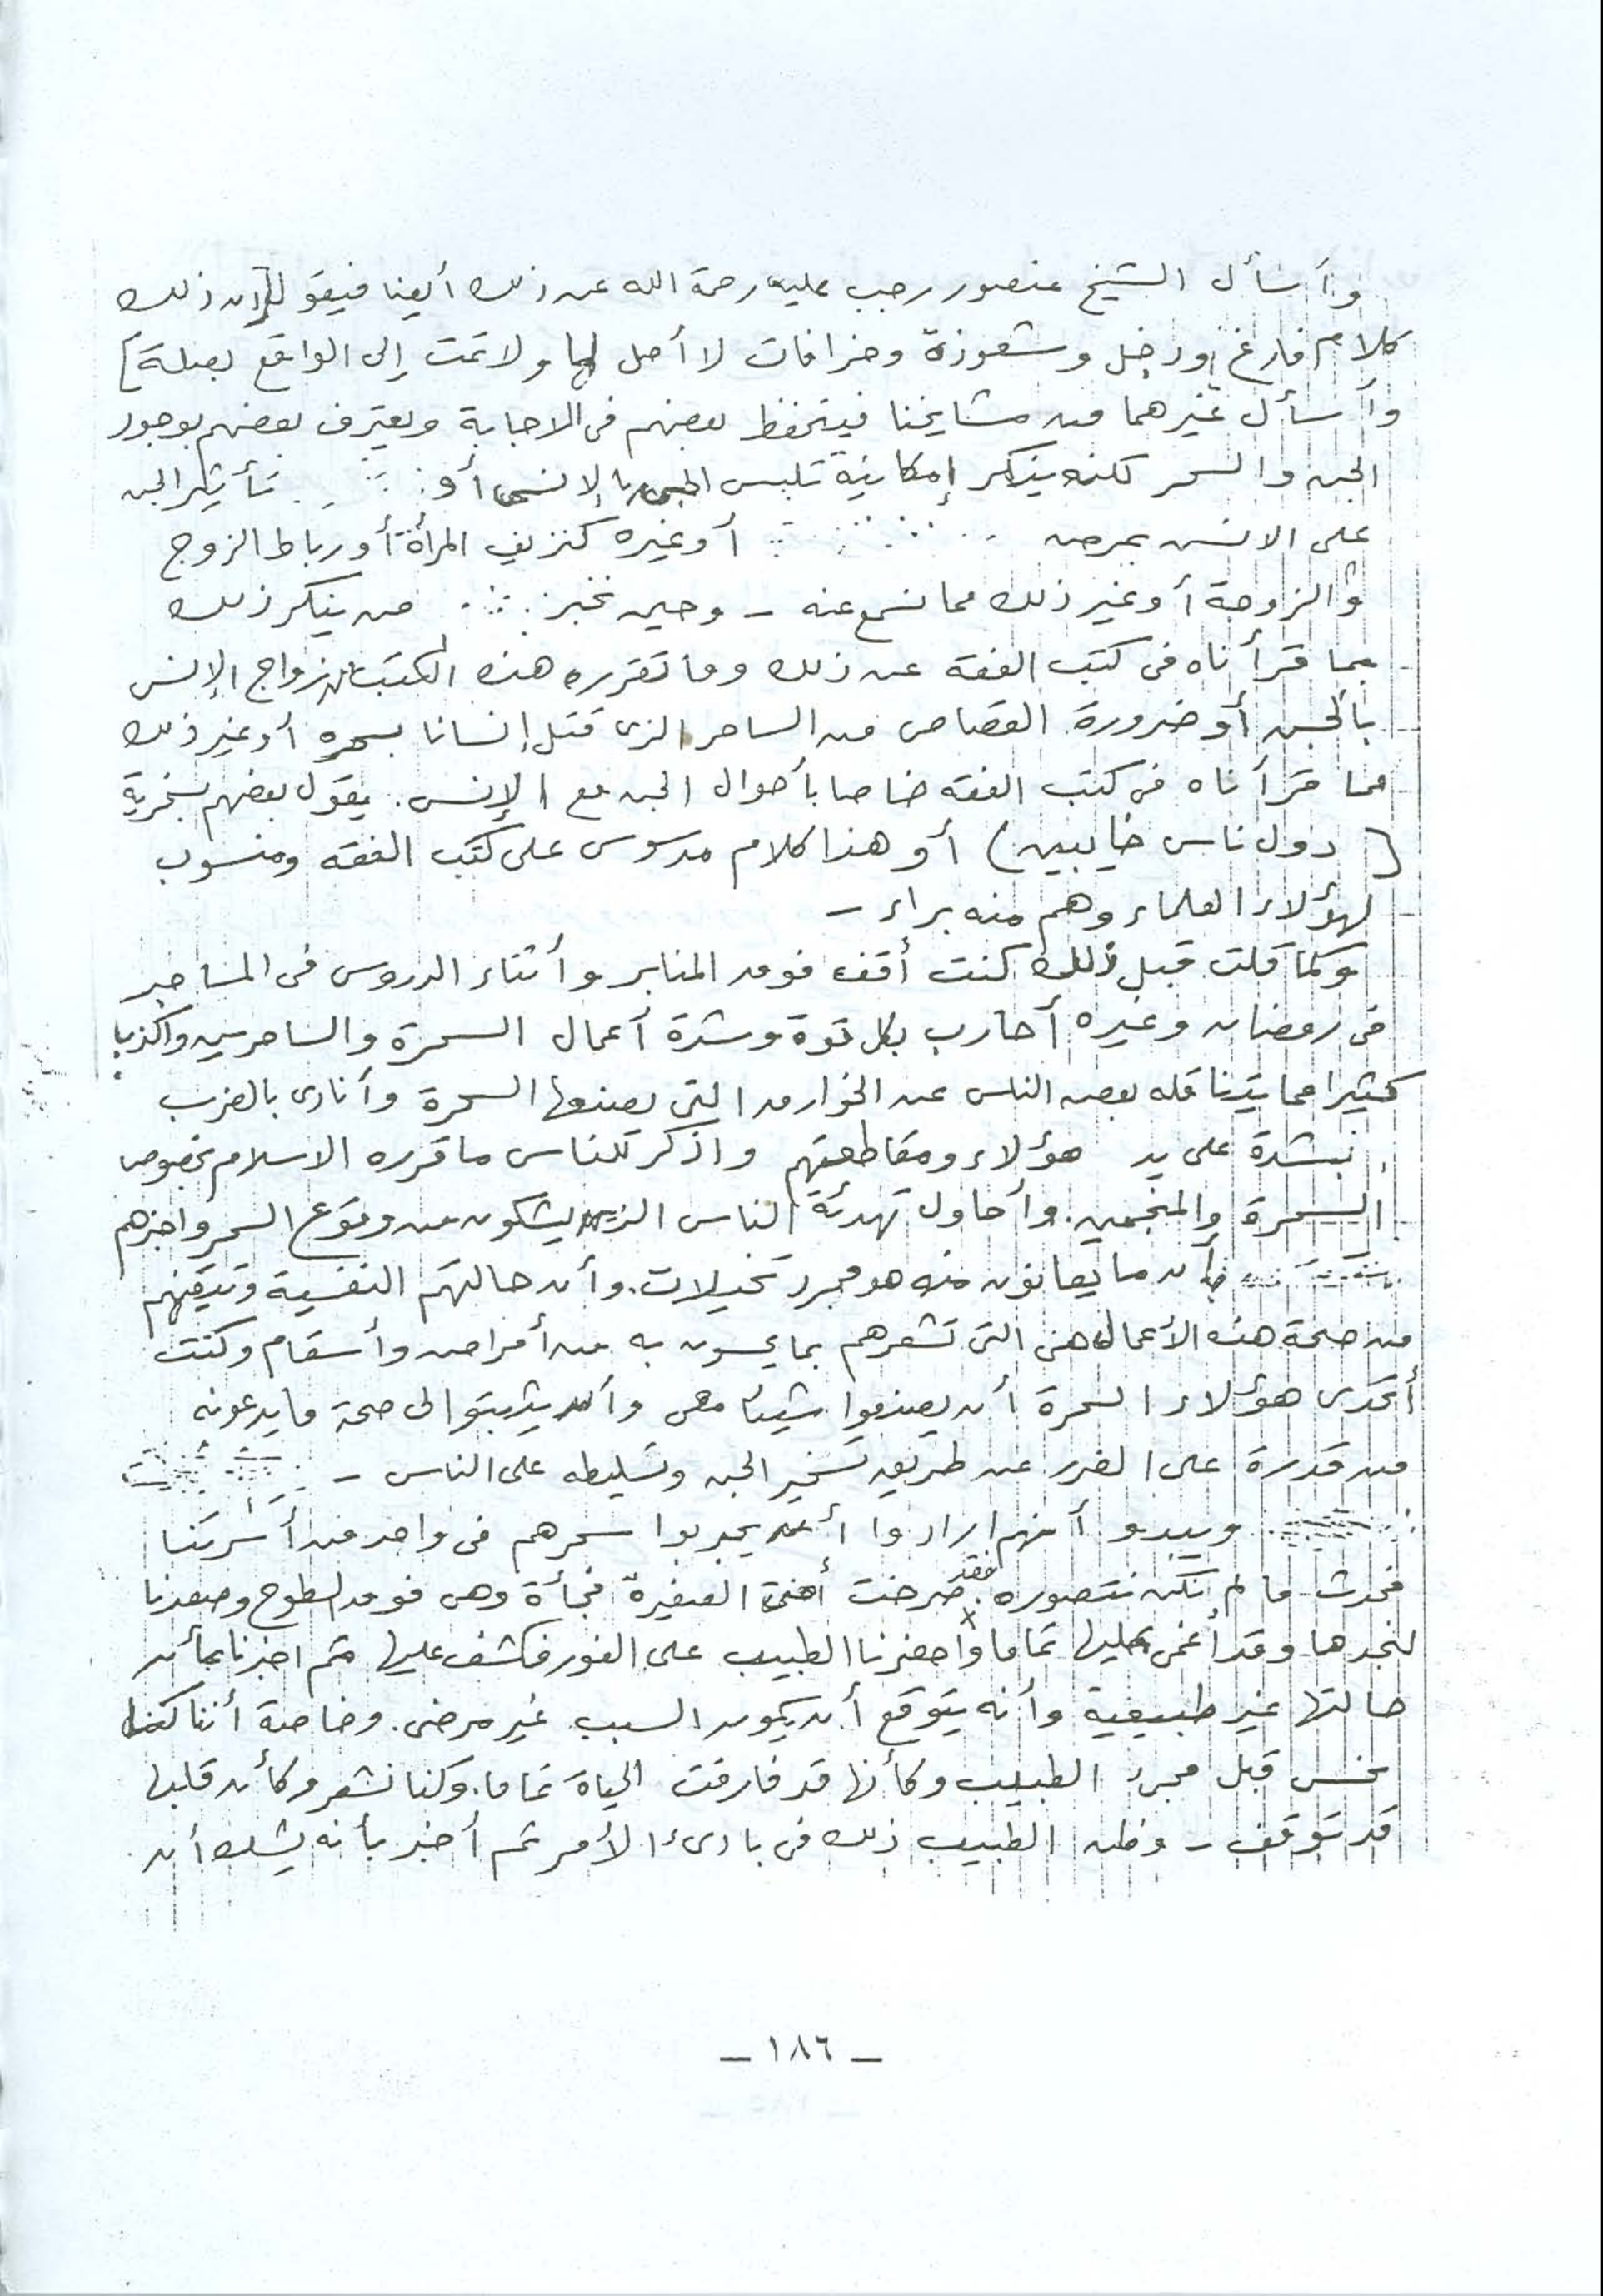 وأسأل الشيخ منصور رجب عليه رحمة الله عن ذلك أيضا فيقول [إن ذلك
كلام فارغ ودجل وشعوذة وخرافات لا أصل لها ولا تمت إلى الواقع بصلة]
وأسأل غيرهما من مشايخنا فيتحفظ بعضهم فى الاجابة ويعترف بعضهم بوجود
الجن والسحر لكنه ينكر إمكانية تلبس الجن بالإنس أو تأثير الجن
على الانس بمرض أو غيره كنزيف المرأة أو رباط الزوج
والزوجة أو غير ذلك مما نسمع عنه - وحين نخبر من ينكر ذلك
بما قرأناه فى كتب الفقه عن ذلك وما تقرره هذه الكتب لزواج الإنس
بالجن أو ضرورة القصاص من الساحر الذى قتل إنسانا بسحره أو غير ذلك
مما قرأناه فى كتب الفقه خاصا بأحوال الجن مع الإنس. يقول بعضهم بسخرية
(دول ناس خايبين) أو هذا كلام مدسوس على كتب الفقه ومنسوب
لهؤلاء العلماء وهم منه براء -
وكما قلت قبل ذلك كنت أقف فوق المنابر وأثناء الدروس فى المساجد
فى رمضان وغيره أحارب بكل قوة وشدة أعمال السحرة والساحرين واكذب
كثيرا مما يتناقله بعض الناس عن الخوارق التى يصنعها السحرة وأنادى بالضرب
بشدة على يد هؤلاء ومقاطعتهم واذكر للناس ما قرره الاسلام بخصوص
السحرة والمنجمين. وأحاول تهدئة الناس الذين يشكون من وقوع السحر واخبرهم
بأن ما يعانون منه هو مجرد تخيلات. وأن حالتهم النفسية وتيقنهم
من صحة هذه الأعمال هى التى تشعرهم بما يحسون به من أمراض وأسقام وكنت
أتحدى هؤلاء السحرة أن يصنعوا شيئا معى وأن يثبتوا لى صحة ما يدعونه
من قدرة على الضرر عن طريق تسخير الجن وتسليطه على الناس -
ويبدو أنهم ارادوا أن يجربوا سحرهم فى واحد من أسرتنا
فحدث ما لم نكن نتصوره فقد صرخت أختى الصغيرة فجأة وهى فوق السطوح وصعدنا
لنجدها وقد أغمى عليها تماما وأحضرنا الطبيب على الفور فكشف عليها ثم اخبرنا بأن
حالتها غير طبيعية وأنه يتوقع أن يكون السبب غير مرضى. وخاصة أننا كنا
نحس قبل مجئ الطبيب وكأنها قد فارقت الحياة تماما. وكنا نشعر وكأن قلبها
قد توقف - وظن الطبيب ذلك فى بادىء الأمر ثم أخبر بأنه يشك أن
- ١٨٦ -